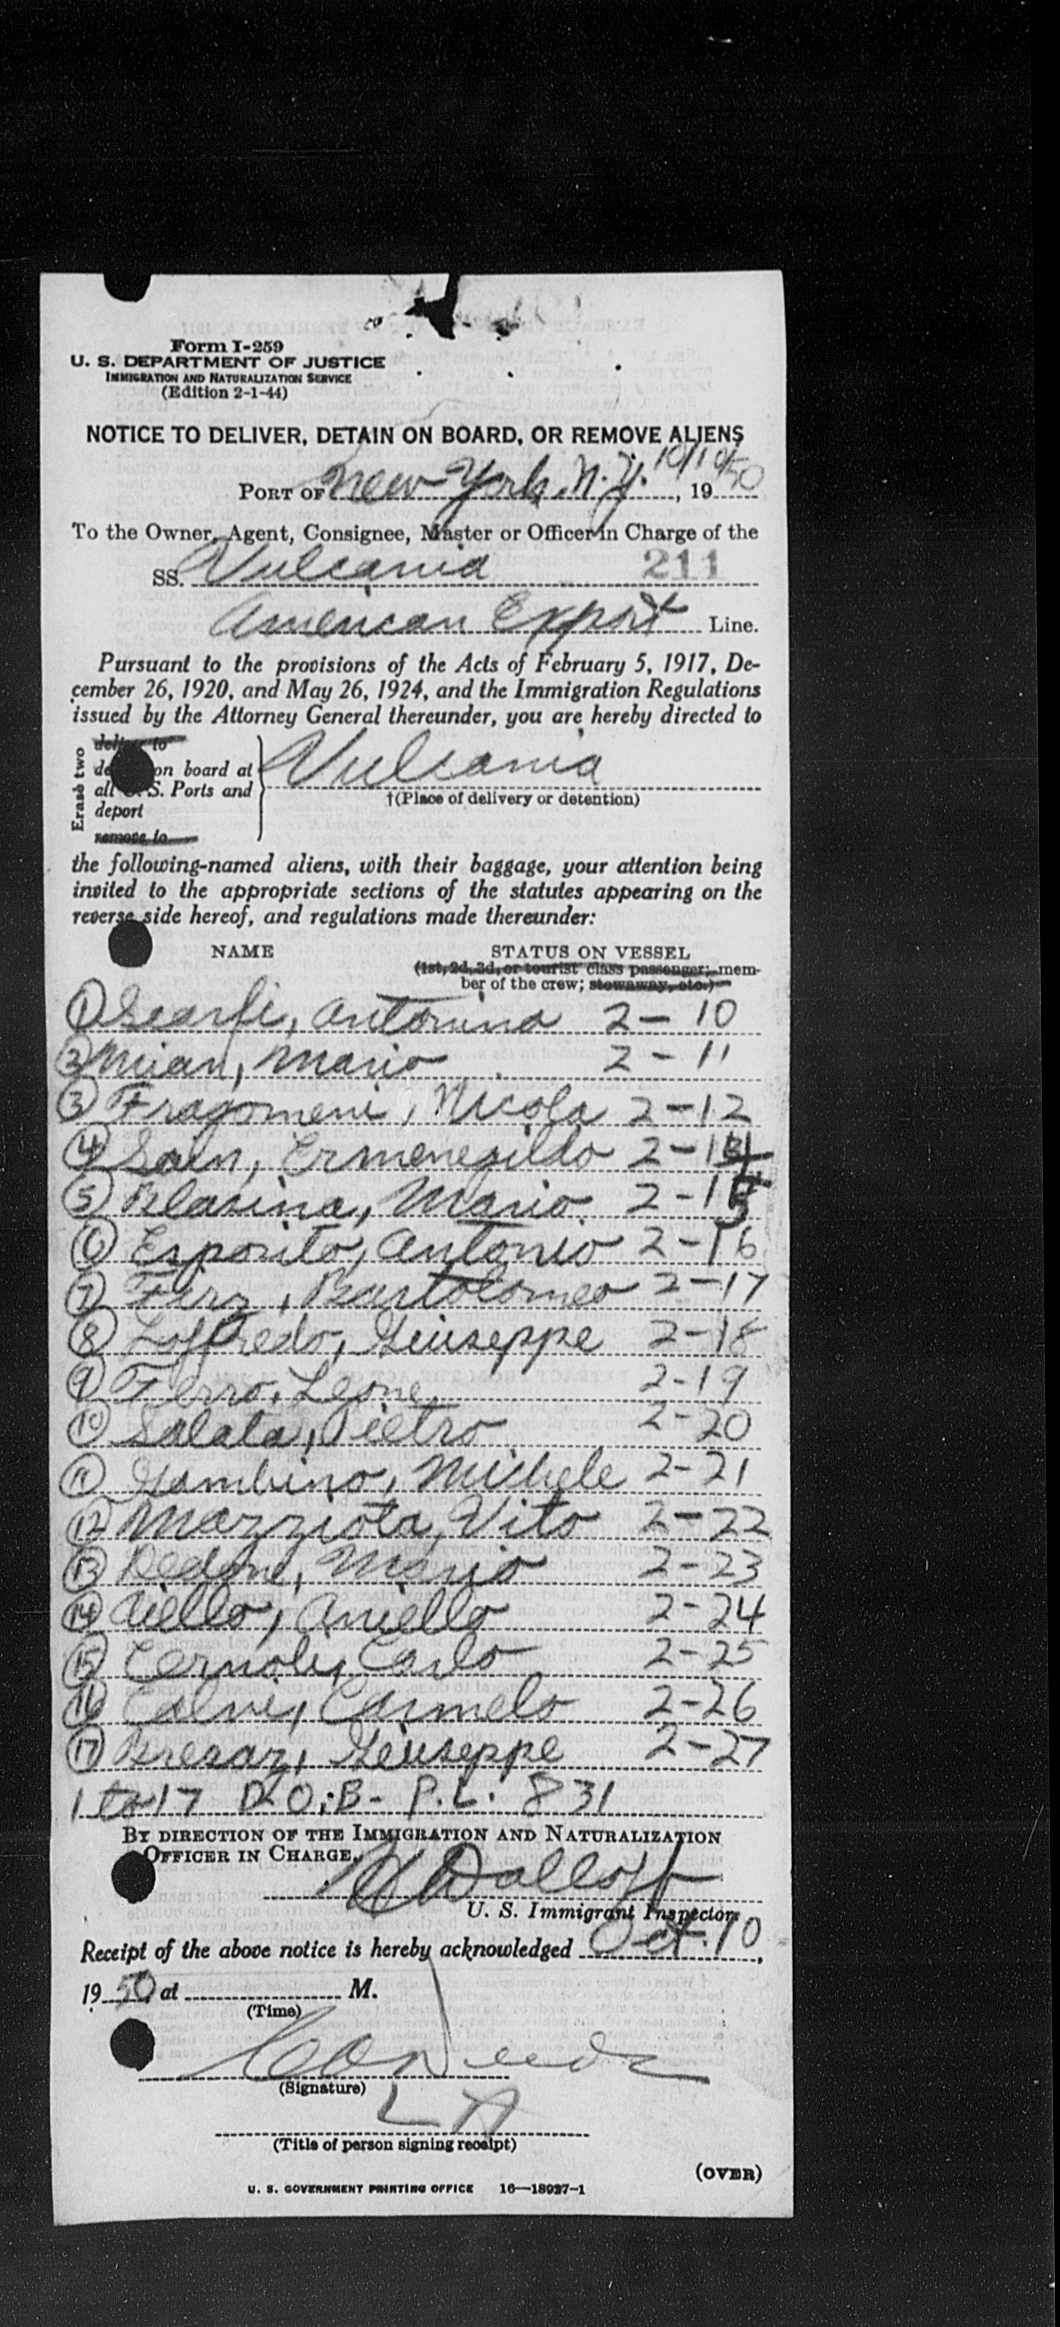 Form I-259
U. S. DEPARTMENT OF JUSTICE
IMMIGRATION AND NATURALIZATION SERVICE
(Edition 2-1-44)
NOTICE TO DELIVER, DETAIN ON BOARD, OR REMOVE ALIENS
PORT OF New York, N.Y. 10/10/50, 19
To the Owner, Agent, Consignee, Master or Officer in Charge of the
SS. Vulcania 211
American Export Line.
Pursuant to the provisions of the Acts of February 5, 1917, De-
cember 26, 1920, and May 26, 1924, and the Immigration Regulations
issued by the Attorney General thereunder, you are hereby directed to
Erase two
deliver to
on board at
all U. S. Ports and
deport
remove to
Vulcania
†(Place of delivery or detention)
the following-named aliens, with their baggage, your attention being
invited to the appropriate sections of the statutes appearing on the
reverse side hereof, and regulations made thereunder:
NAME STATUS ON VESSEL
(1st, 2d, 3d, or tourist class passenger; mem-
ber of the crew; stowaway, etc.)
1 Scarfi, Antonino 2-10
2 Mian, Mario 2-11
3 Fragomeni, Nicola 2-12
4 Sain, Ermenegildo 2-14
5 Blasina, Mario 2-15
6 Esposito, Antonio 2-16
7 Bartolomeo 2-17
8 Loffredo, Giuseppe 2-18
9 Ferro, Leone 2-19
10 Salata, Pietro 2-20
11 Gambino, Michele 2-21
12 Mazziota, Vito 2-22
13 Mario 2-23
14 Aiello, Aniello 2-24
15 Carlo 2-25
16 Calvi, Carmelo 2-26
17 Bresaz, Giuseppe 2-27
1 to 17 D.O.B- P.L. 831
BY DIRECTION OF THE IMMIGRATION AND NATURALIZATION
OFFICER IN CHARGE.
U. S. Immigrant Inspector.
Receipt of the above notice is hereby acknowledged Oct. 10,
19 50 at M.
(Time)
(Signature)
(Title of person signing receipt)
(OVER)
U. S. GOVERNMENT PRINTING OFFICE 16—18937-1